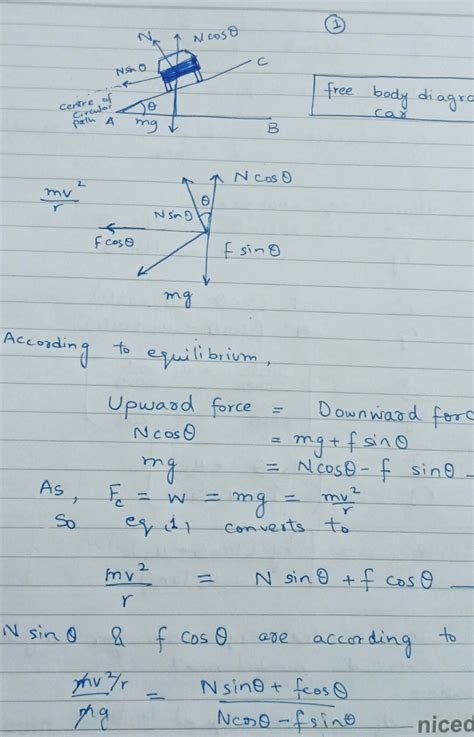 1
N
N cos θ
N sin θ
C
free body diagra
car
Centre of
Circular
path
A
θ
mg
B
mv²/r
N cos θ
θ
N sin θ
f cos θ
f sin θ
mg
According to equilibrium,
Upward force = Downward forc
N cos θ = mg + f sin θ
mg = N cos θ - f sin θ -
As, F_c = W = mg = mv²/r
So eq (1) converts to
mv²/r = N sin θ + f cos θ -
N sin θ & f cos θ are according to
mv²/r / mg = N sin θ + f cos θ / N cos θ - f sin θ
niced